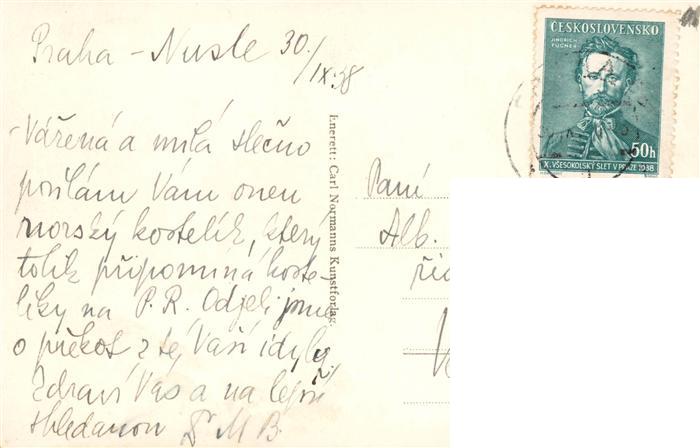 Praha - Nusle 30./IX.38
Vážená a milá slečno
posílám Vám onen
norský kostelík, který
tolik připomíná koste-
líky na P. R. Odjeli jsme
o překot z té Vaší idyly.
Zdraví Vás a na lepší
shledanou Dr M B.
Enerett: Carl Normanns Kunstforlag.
ČESKOSLOVENSKO
JINDŘICH
FÜGNER
50h
X. VŠESOKOLSKÝ SLET V PRAZE 1938
Paní
Alb.